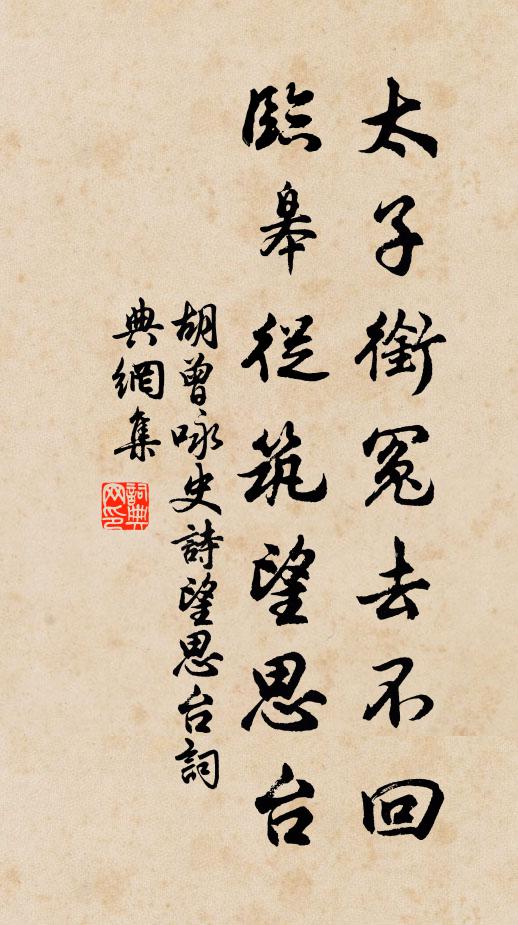 太子銜冤去不回
臨皋從筑望思台
胡曾咏史詩望思台詞
典網集
詞典网印